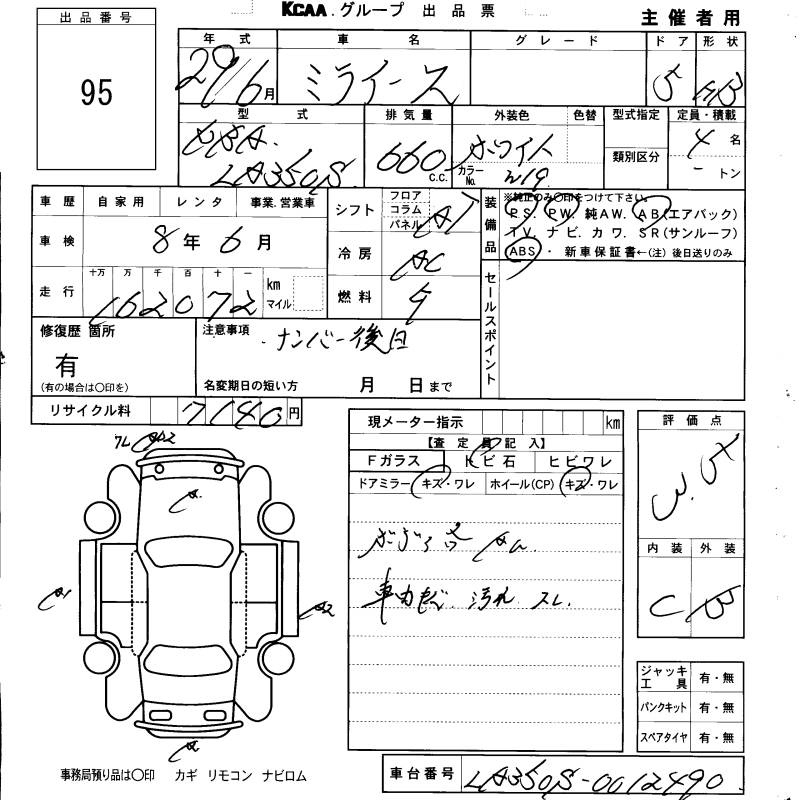 KCAA.グループ 出品票
主催者用
出品番号
95
年式 車名 グレード ドア 形状
29/6月 ミライース 5 HB
型式 排気量 外装色 色替 型式指定 定員・積載
DBA 660 C.C. ホワイト 類別区分 4名
LA350S カラーNo. W19 - トン
車歴 自家用 レンタ 事業.営業車
車検 8年6月
走行 十万 万 千 百 十 一 km マイル
162072
シフト フロア コラム パネル AT
冷房 AC
燃料
装備品 ※純正のみ〇印をつけて下さい。
P.S. P.W. 純A.W. A.B(エアバック)
T.V. ナビ. カワ. S.R(サンルーフ)
ABS ・ 新車保証書←(注)後日送りのみ
セールスポイント
修復歴 箇所
有
(有の場合は〇印を)
注意事項
ナンバー後日
名変期日の短い方 月 日まで
リサイクル料 7180円
現メーター指示 km
【査定員記入】
Fガラス トビ石 ヒビワレ
ドアミラー キズ・ワレ ホイール(CP) キズ・ワレ
車内 汚れ スレ
評価点
3.5
内装 外装
C B
A1
A2
ジャッキ工具 有・無
パンクキット 有・無
スペアタイヤ 有・無
事務局預り品は〇印 カギ リモコン ナビロム
車台番号 LA350S-0012490